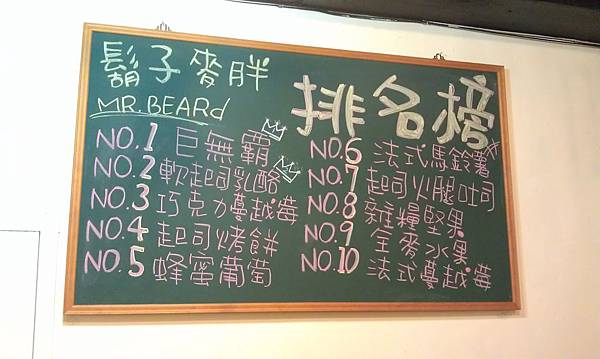 鬍子麥胖
MR. BEARd
排名榜
NO.1 巨無霸
NO.2 軟起司乳酪
NO.3 巧克力蔓越莓
NO.4 起司烤餅
NO.5 蜂蜜葡萄
NO.6 法式馬鈴薯
NO.7 起司火腿吐司
NO.8 雜糧堅果
NO.9 全麥水果
NO.10 法式蔓越莓